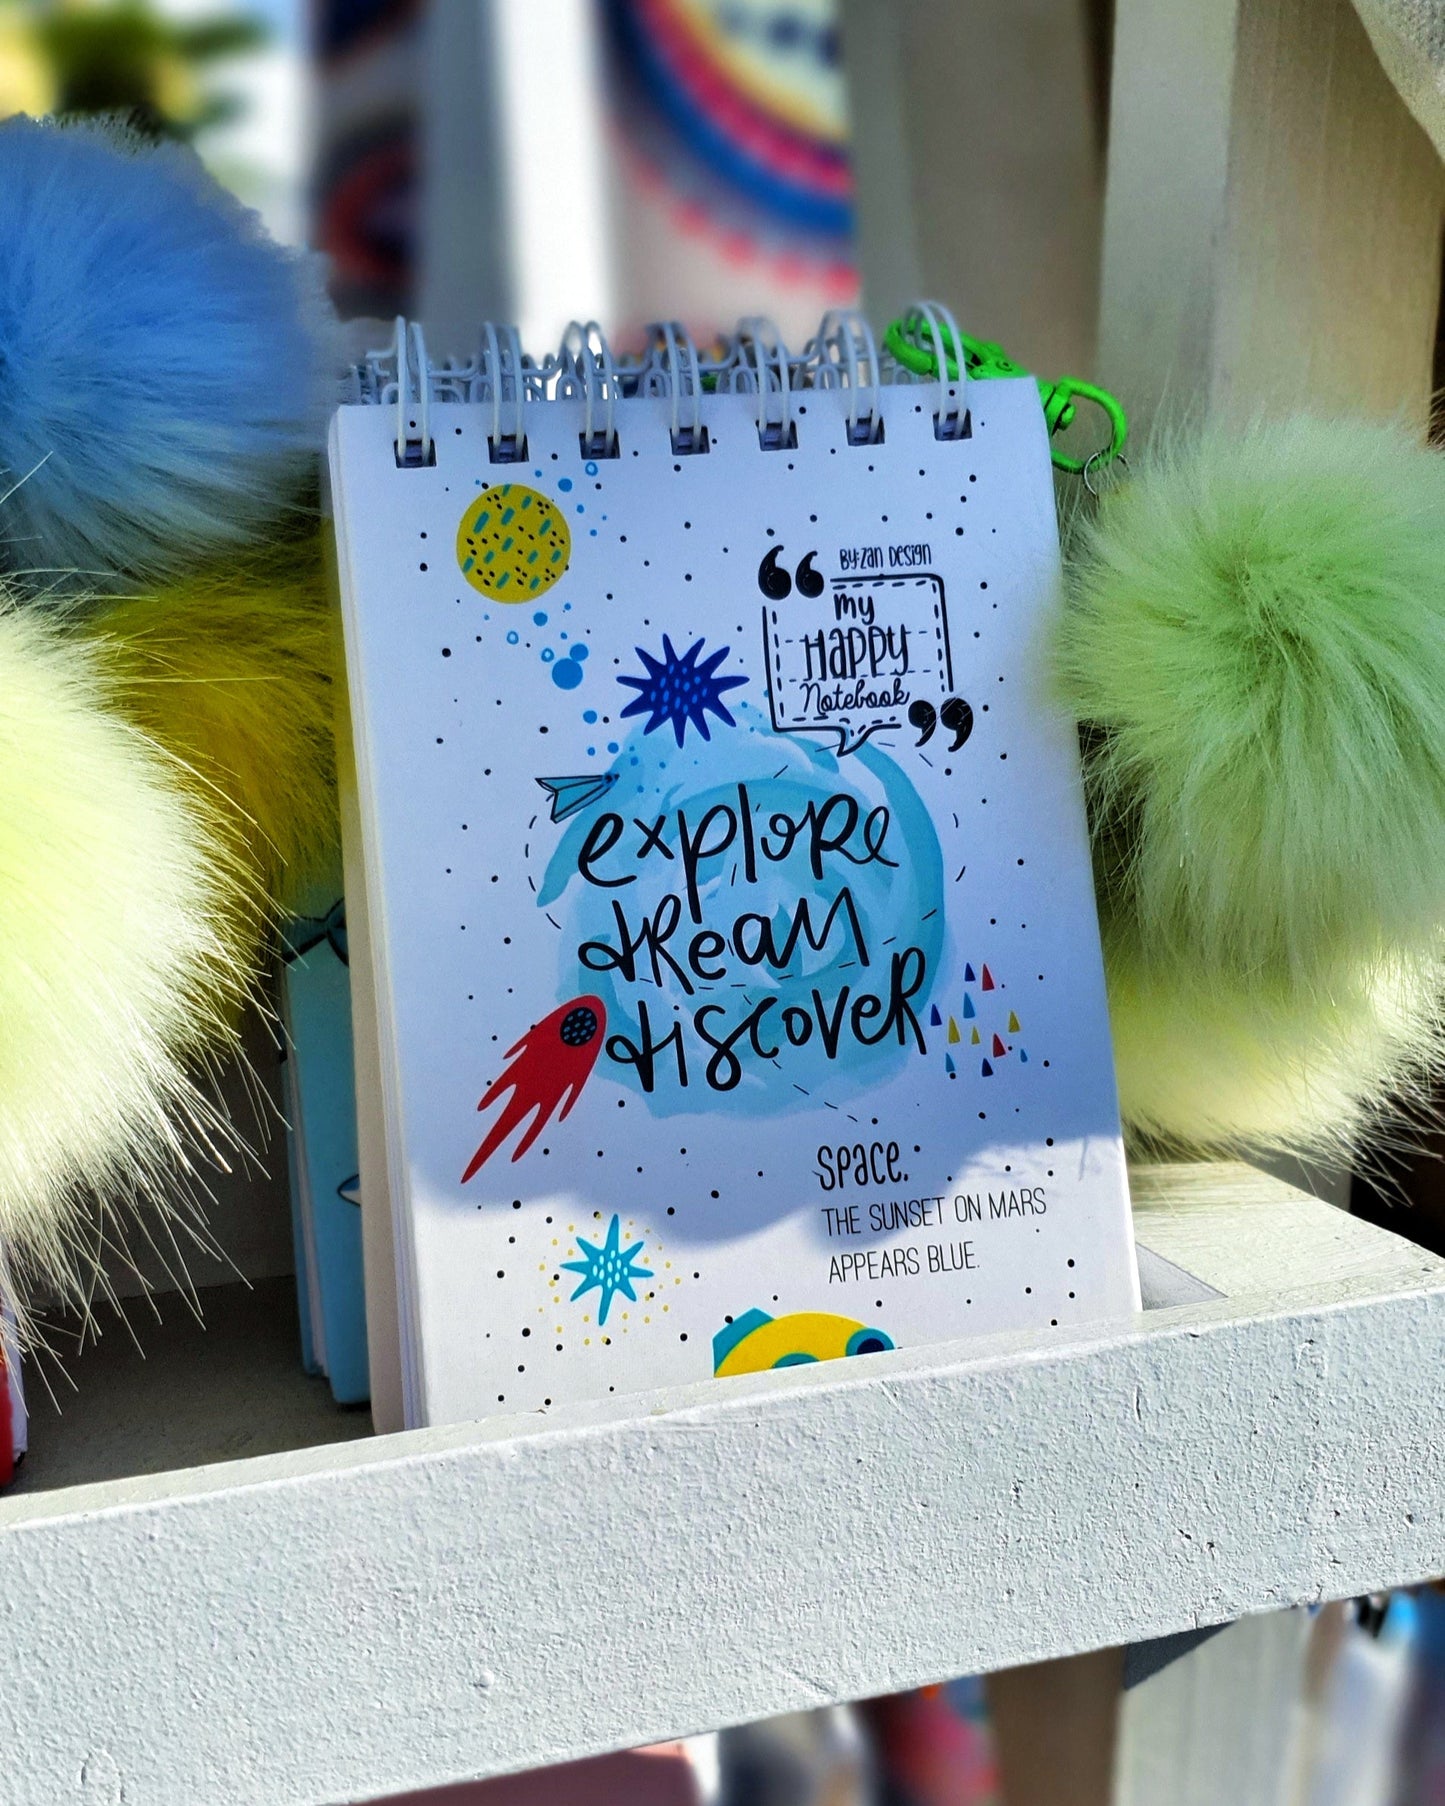 By:Zan Design
my
Happy
Notebook
explore
dream
discover
Space.
THE SUNSET ON MARS
APPEARS BLUE.